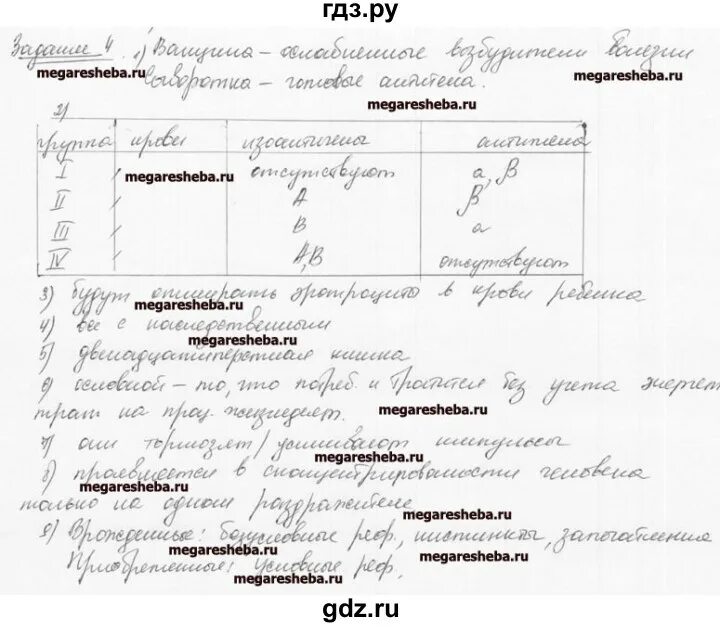 гдз.ру
Задание 4. 1) Вакцина – ослабленные возбудители болезни
megaresheba.ru megaresheba.ru
сыворотка – готовые антитела.
megaresheba.ru
2)
группа крови изоантигены антитела
I отсутствуют α, β
megaresheba.ru
II А β
III В α
IV А,В отсутствуют
3) будут отмирать эротроциты в крови ребенка
megaresheba.ru
4) все с наследственными
megaresheba.ru
5) двенадцатиперстная кишка
6) основной – то, что потреб. и тратится без учета энергет
трат на проц. жизнедеят.
megaresheba.ru
7) они тормозят/усиливают импульсы
megaresheba.ru
8) проявляется в сконцентрированости человека
megaresheba.ru
только на одном раздражителе
megaresheba.ru
9) Врожденные: безусловные реф., инстинкты, запечатления
megaresheba.ru megaresheba.ru
Приобретенные: условные реф.
megaresheba.ru
gdz.ru